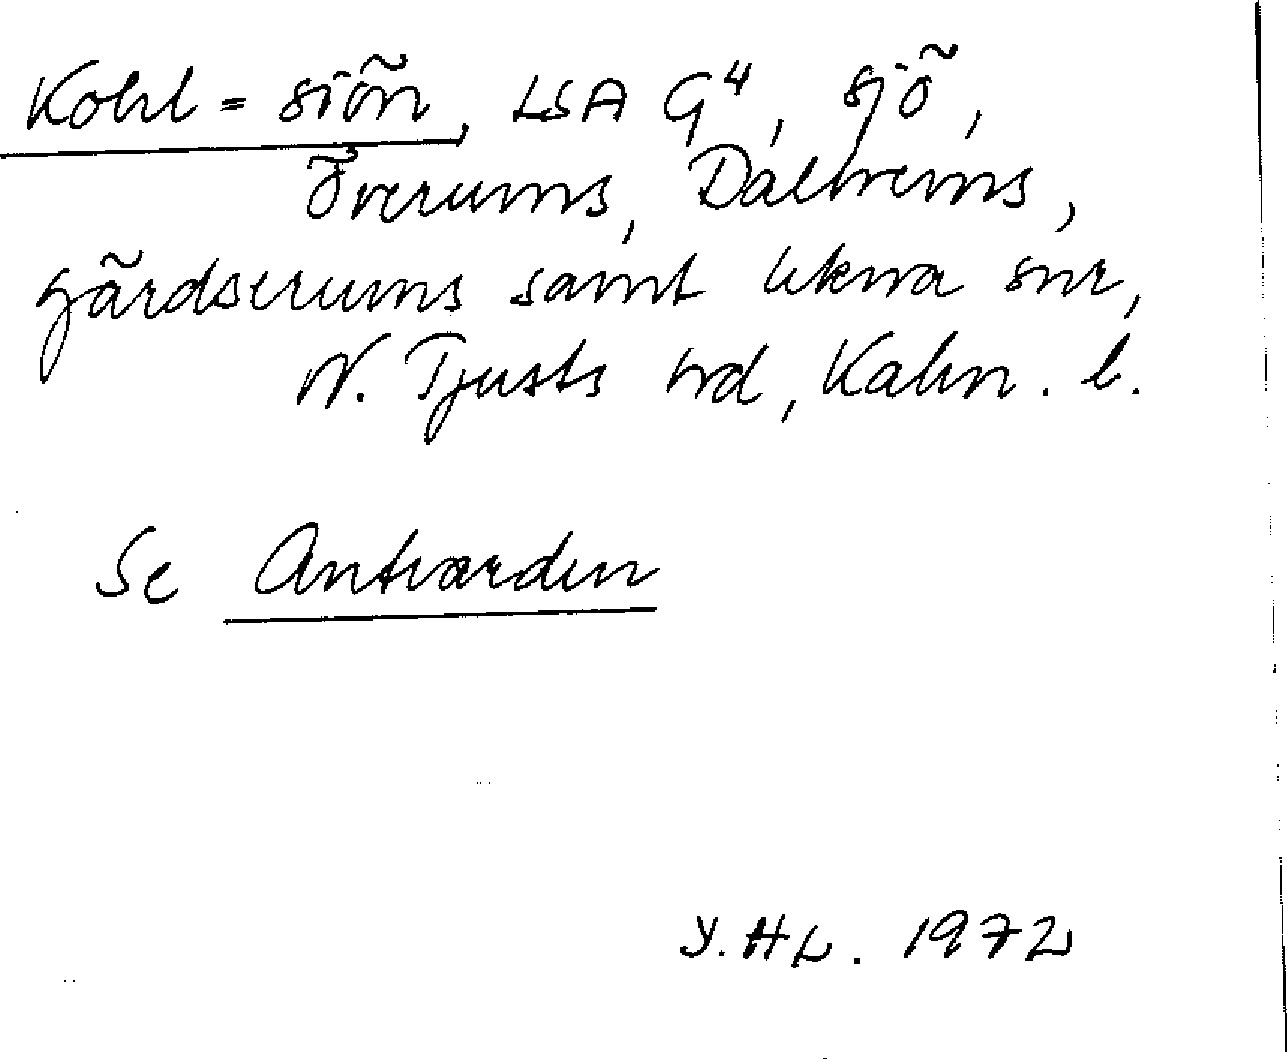 Kohl=siön, LSA G4, sjö,
Överums, Dalhems,
Gärdserums samt Ukna snr,
N. Tjusts hd, Kalm. l.
Se Antvarden
Y. HL. 1972